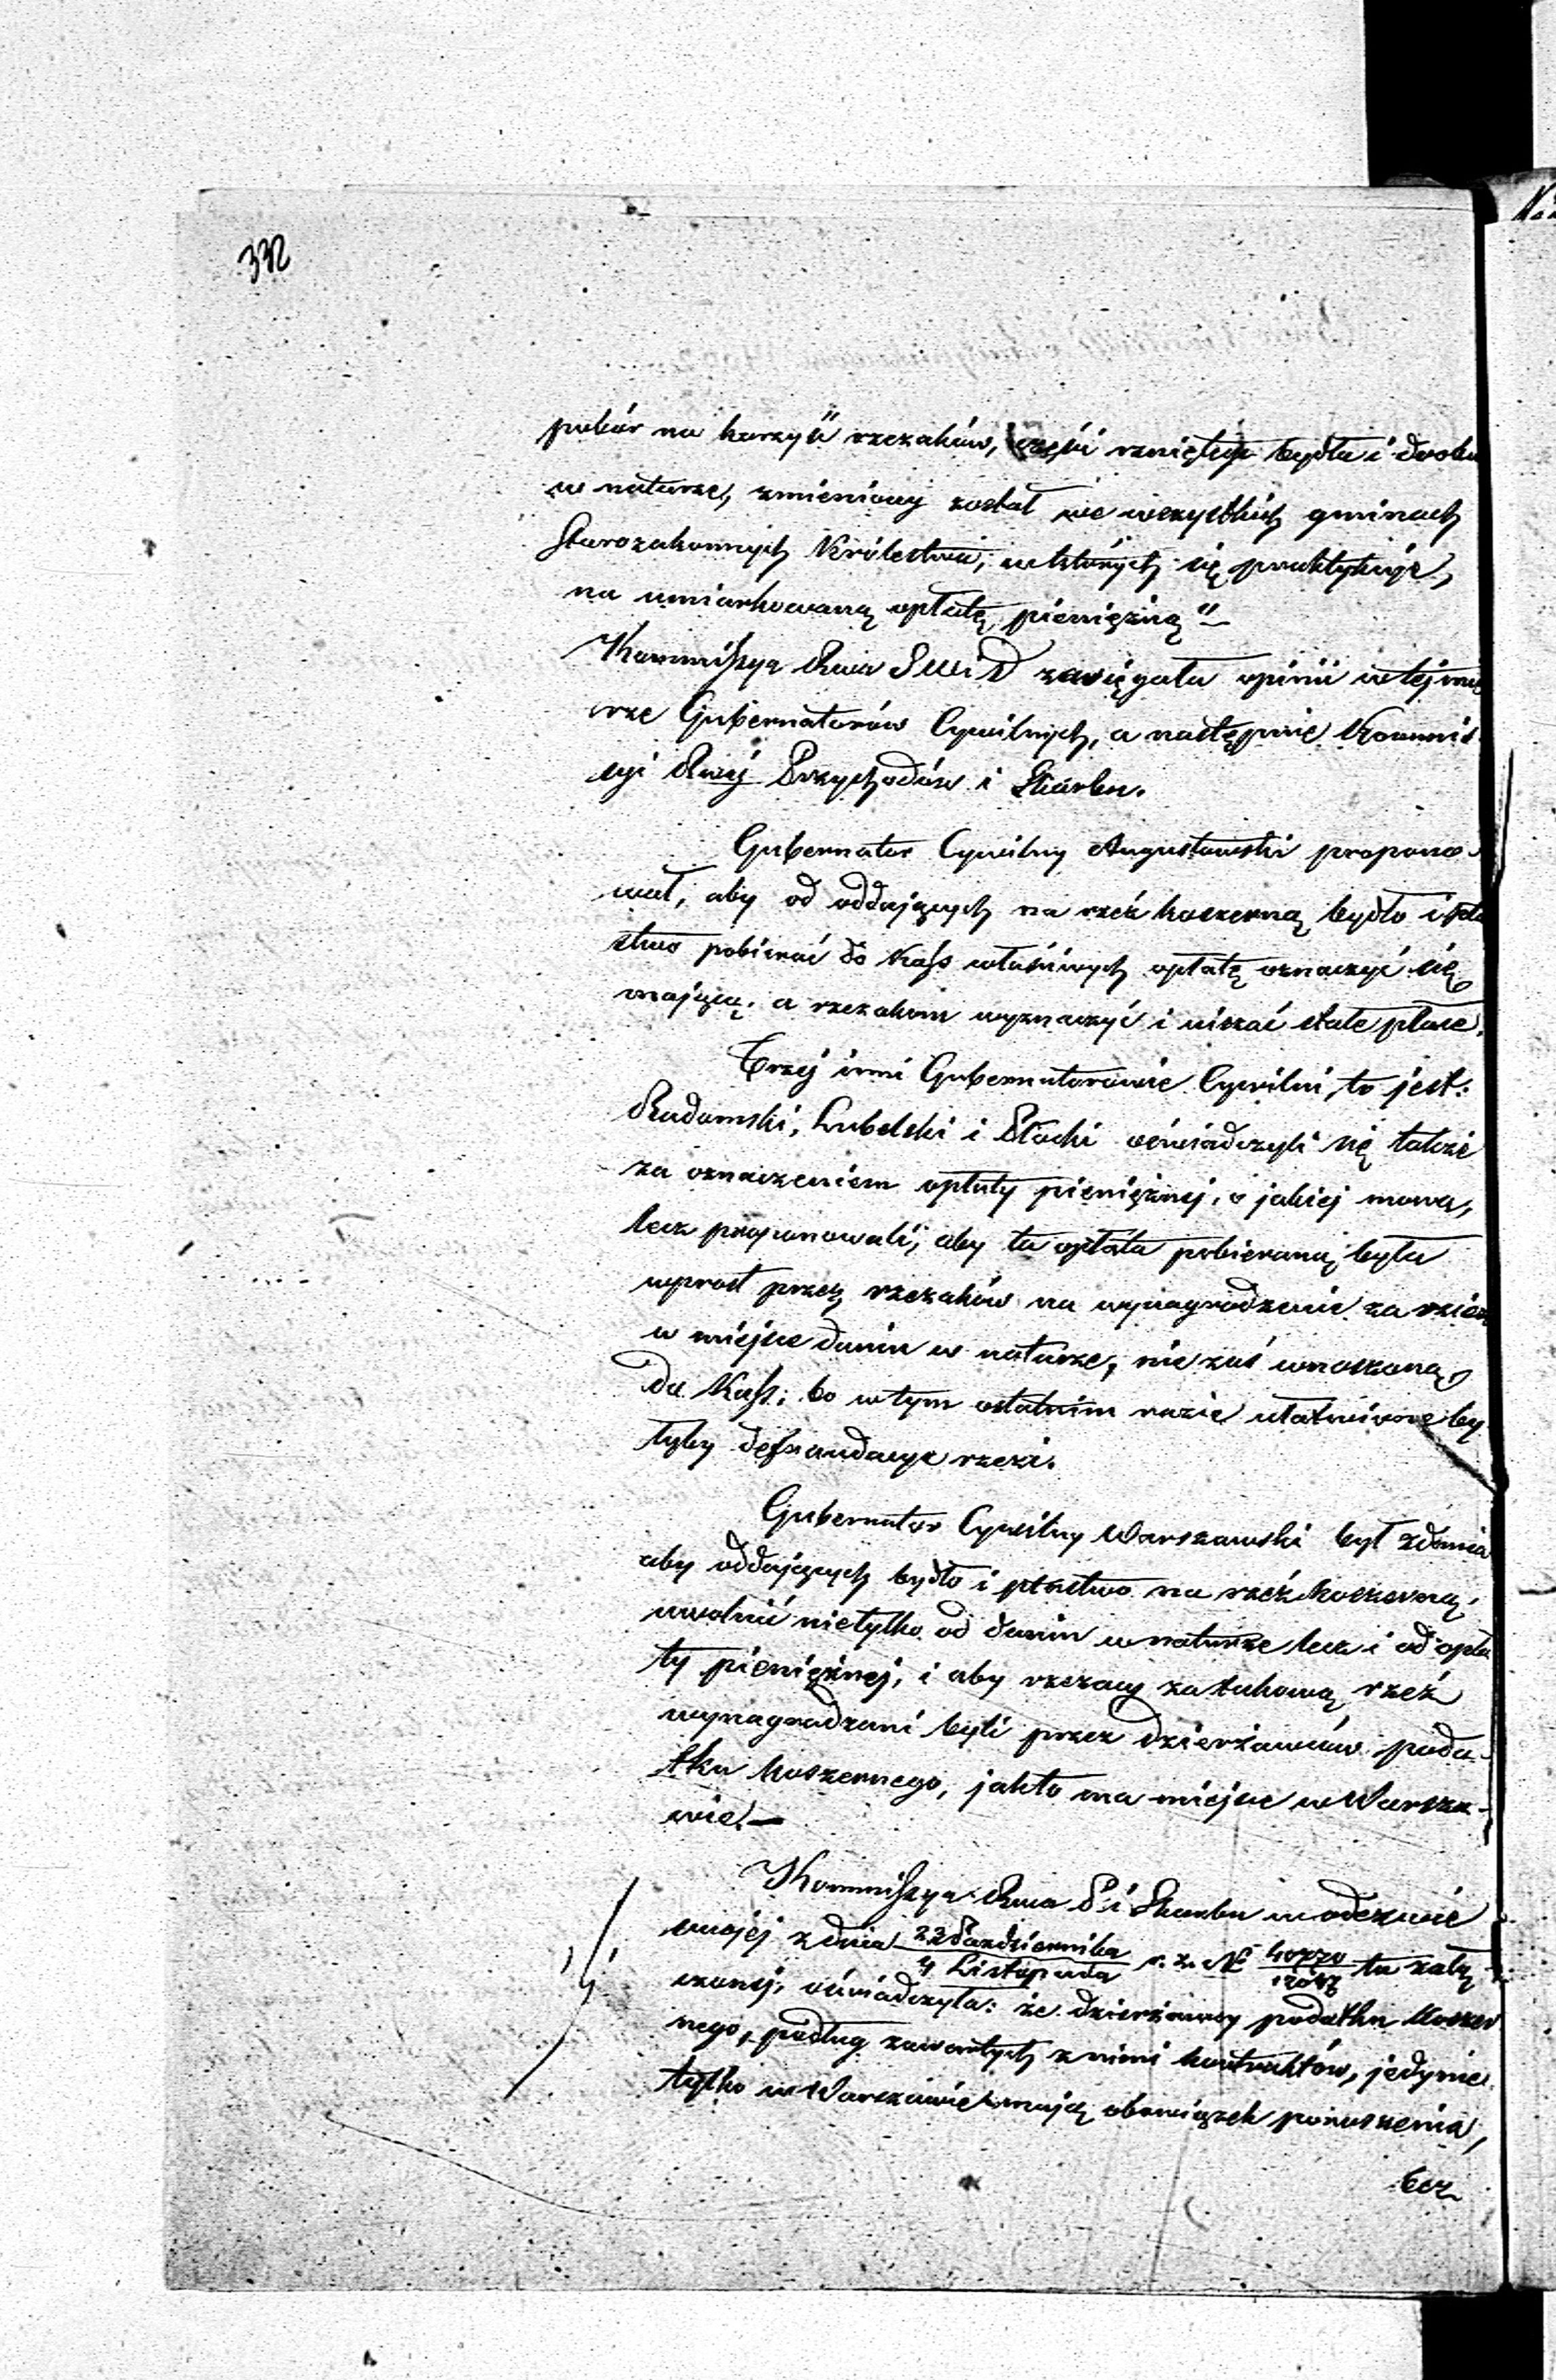 332
pobór na korzyść rzezaków, części rzniętego bydła i drobiu
w naturze, zmieniony został we wszystkich gminach
Starozakonnych Królestwa, w których się praktykuje,
na umiarkowaną opłatę pieniężną"
Kommissya Rwa S W i D zasięgała opinii w tej mie
rze Gubernatorów Cywilnych, a następnie Kommis
syi Rwéj Przychodów i Skarbu.
Gubernator Cywilny Augustowski propono-
wał, aby od oddających na rzeź koszerną bydło i pta
stwo pobierać do Kass właściwych opłatę oznaczyć się
mającą, a rzezakom wyznaczyć i uiszczać stałe płace.
Trzej inni Gubernatorowie Cywilni, to jest:
Radomski, Lubelski i Płocki oświadczyli się także
za oznaczeniem opłaty pieniężnej, o jakiej mowa,
lecz proponowali, aby ta opłata pobieraną była
wprost przez rzezaków na wynagrodzenie za rzież
w miejsce danin w naturze, nie zaś wnoszoną
do Kass; bo w tym ostatnim razie ułatwione by
łyby defraudacye rzezi.
Gubernator Cywilny Warszawski był zdania
aby oddających bydło i ptastwo na rzeź koszerną,
uwolnić nietylko od danin w naturze lecz i od opła
ty pieniężnej, i aby rzezacy za takową rzeź
wynagradzani byli przez dzierżawców poda-
tku koszernego, jak to ma miejsce w Warsza-
wie.—
Kommissya Rwa P i Skarbu w odezwie
swojej z dnia 23 Października / 4 Listopada r. z. N° tu załą
czonej, oświadczyła: że dzierżawcy podatku koszer
nego, podług zawartych z nimi kontraktów, jedynie
tylko w Warszawie mają obowiązek ponoszenia,
bez